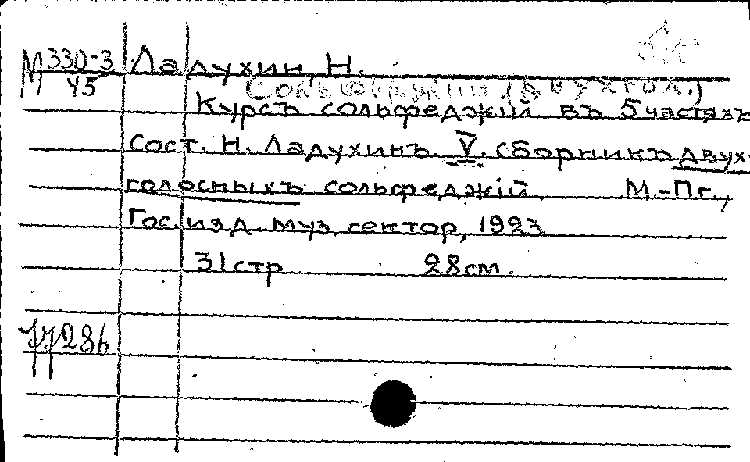 М 330-3 Ладухин, Н.
45
Сольфеджии (двухгол.)
Курсъ сольфеджій въ 5 частяхъ
Сост. Н. Ладухинъ. V. сборникъ двух-
голосныхъ сольфеджій. М.-Пг.,
Гос. изд. муз. сектор, 1923
31 стр 28 см.
77286